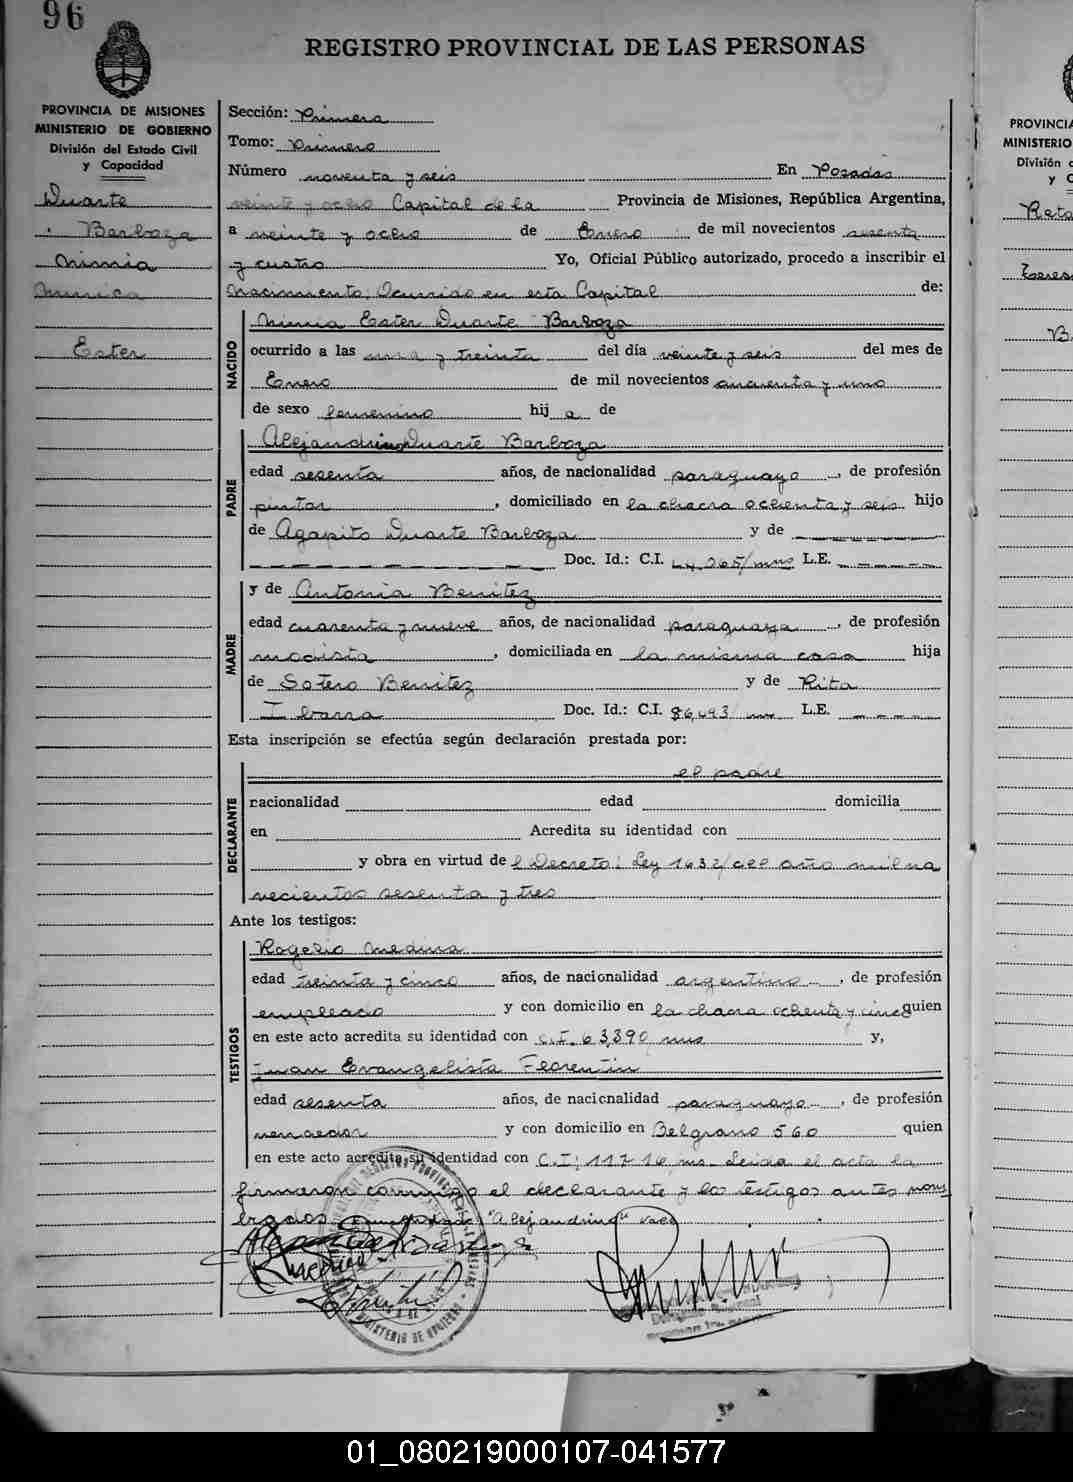 96
REGISTRO PROVINCIAL DE LAS PERSONAS
PROVINCIA DE MISIONES
MINISTERIO DE GOBIERNO
División del Estado Civil
y Capacidad
Duarte
Barboza
Ninnia
Ester
Sección: Primera
Tomo: Primero
Número noventa y seis En Posadas
veinte y ocho Capital de la Provincia de Misiones, República Argentina,
a veinte y ocho de Enero de mil novecientos sesenta
y cuatro Yo, Oficial Público autorizado, procedo a inscribir el
Nacimiento: Ocurrido en esta Capital de:
NACIDO
Ninnia Ester Duarte Barboza
ocurrido a las una y treinta del día veinte y seis del mes de
Enero de mil novecientos cuarenta y uno
de sexo femenino hij a de
PADRE
Alejandrino Duarte Barboza
edad sesenta años, de nacionalidad paraguayo, de profesión
pintor, domiciliado en la chacra ochenta y seis hijo
de Agapito Duarte Barboza y de
Doc. Id.: C.I. L.E.
MADRE
y de Antonia Benitez
edad cuarenta y nueve años, de nacionalidad paraguaya, de profesión
modista, domiciliada en la misma casa hija
de Sotero Benitez y de Rita
Ibarra Doc. Id.: C.I. L.E.
Esta inscripción se efectúa según declaración prestada por:
DECLARANTE
el padre
nacionalidad edad domicilia
en Acredita su identidad con
y obra en virtud de l Decreto: Ley 1632/ del año mil no
vecientos sesenta y tres
Ante los testigos:
TESTIGOS
Rogelio Medina
edad treinta y cinco años, de nacionalidad argentino, de profesión
empleado y con domicilio en la chacra ochenta y cinco quien
en este acto acredita su identidad con C.I. 63,390 mns y,
Juan Evangelista Florentin
edad sesenta años, de nacionalidad paraguayo, de profesión
vendedor y con domicilio en Belgrano 560 quien
en este acto acredita su identidad con C.I: 117 16 mns. Leida el acta la
firmaron conmigo el declarante y los testigos antes nom
brados "Alejandrino" vale
PROVINCIA
MINISTERIO
División d
y C
01_080219000107-041577